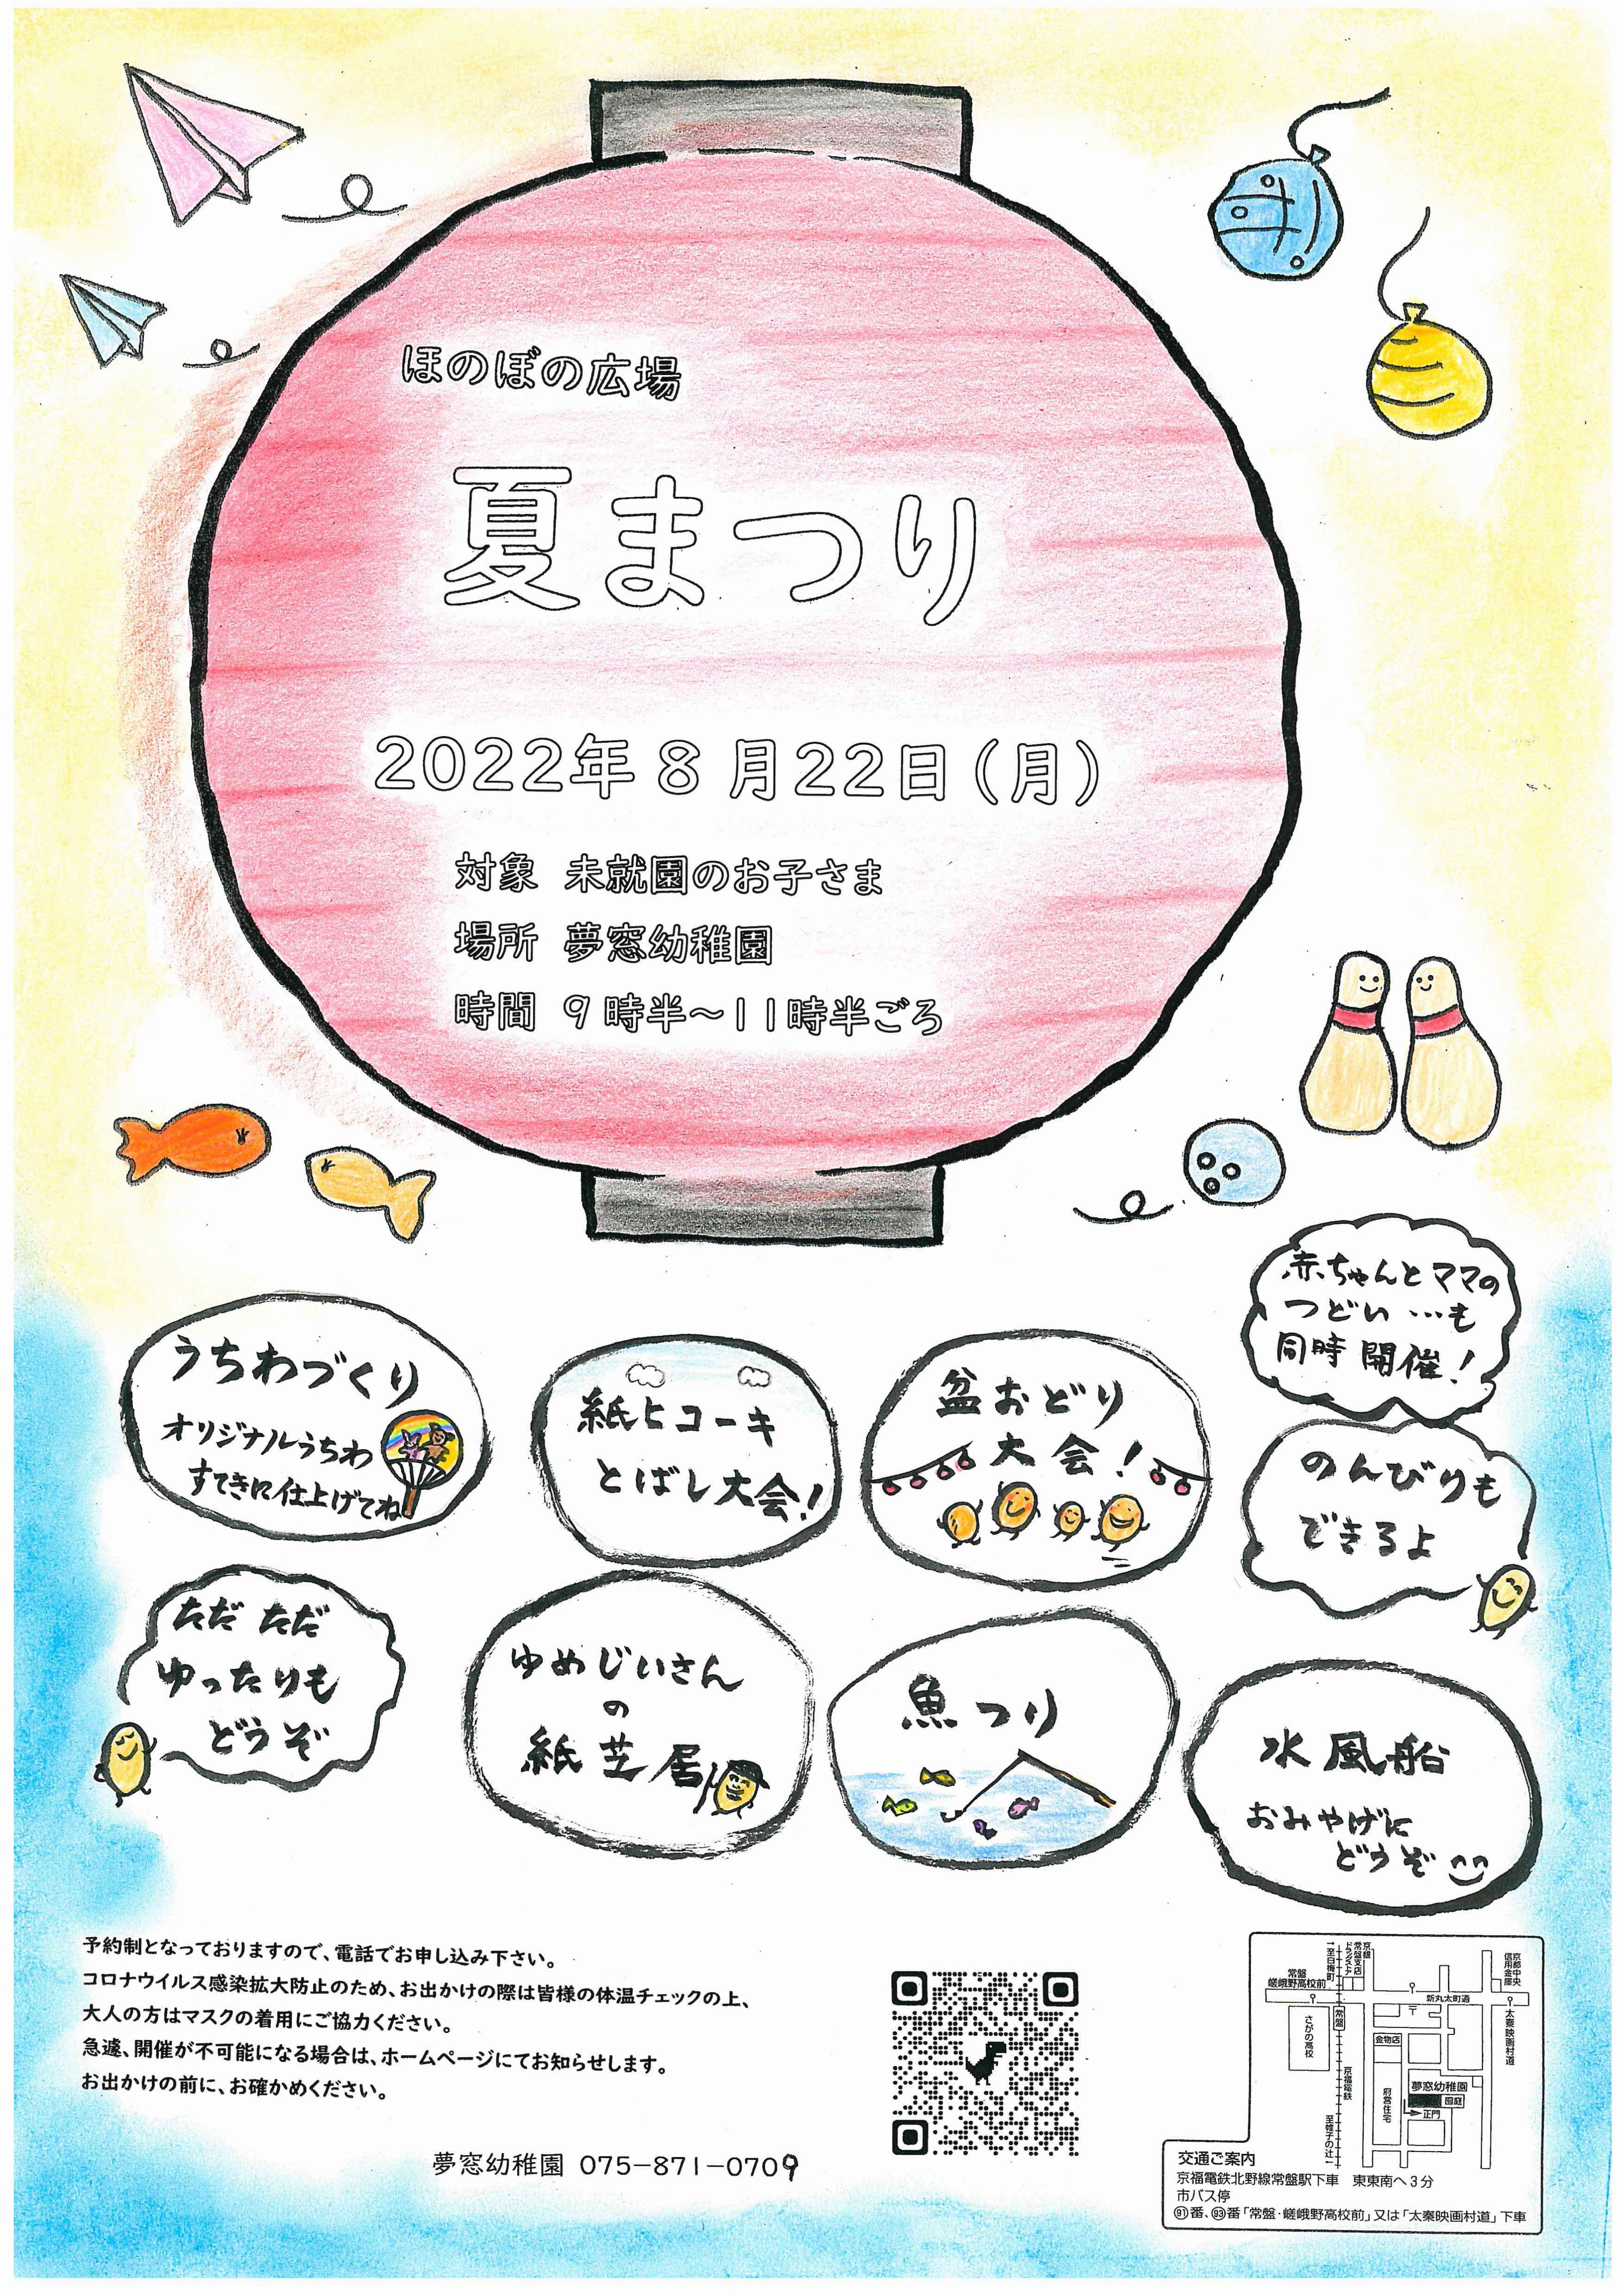 ほのぼの広場
夏まつり
2022年8月22日(月)
対象 未就園のお子さま
場所 夢窓幼稚園
時間 9時半～11時半ごろ
赤ちゃんとママの
つどい…も
同時開催!
うちわづくり
オリジナルうちわ
すてきに仕上げてね
紙ヒコーキ
とばし大会!
盆おどり
大会!
のんびりも
できるよ
ただ ただ
ゆったりも
どうぞ
ゆめじいさん
の
紙芝居
魚つり
水風船
おみやげに
どうぞ
予約制となっておりますので、電話でお申し込み下さい。
コロナウイルス感染拡大防止のため、お出かけの際は皆様の体温チェックの上、
大人の方はマスクの着用にご協力ください。
急遽、開催が不可能になる場合は、ホームページにてお知らせします。
お出かけの前に、お確かめください。
夢窓幼稚園 075-871-0709
至白梅町
ドラッグストア
常盤支店
京銀
京都中央
信用金庫
常盤
嵯峨野高校前
新丸太町通
常盤
さがの高校
金物店
太秦映画村道
京福電鉄
府営住宅
夢窓幼稚園
園庭
正門
至帷子の辻
交通ご案内
京福電鉄北野線常盤駅下車 東東南へ3分
市バス停
㉑番、㉓番「常盤・嵯峨野高校前」又は「太秦映画村道」下車